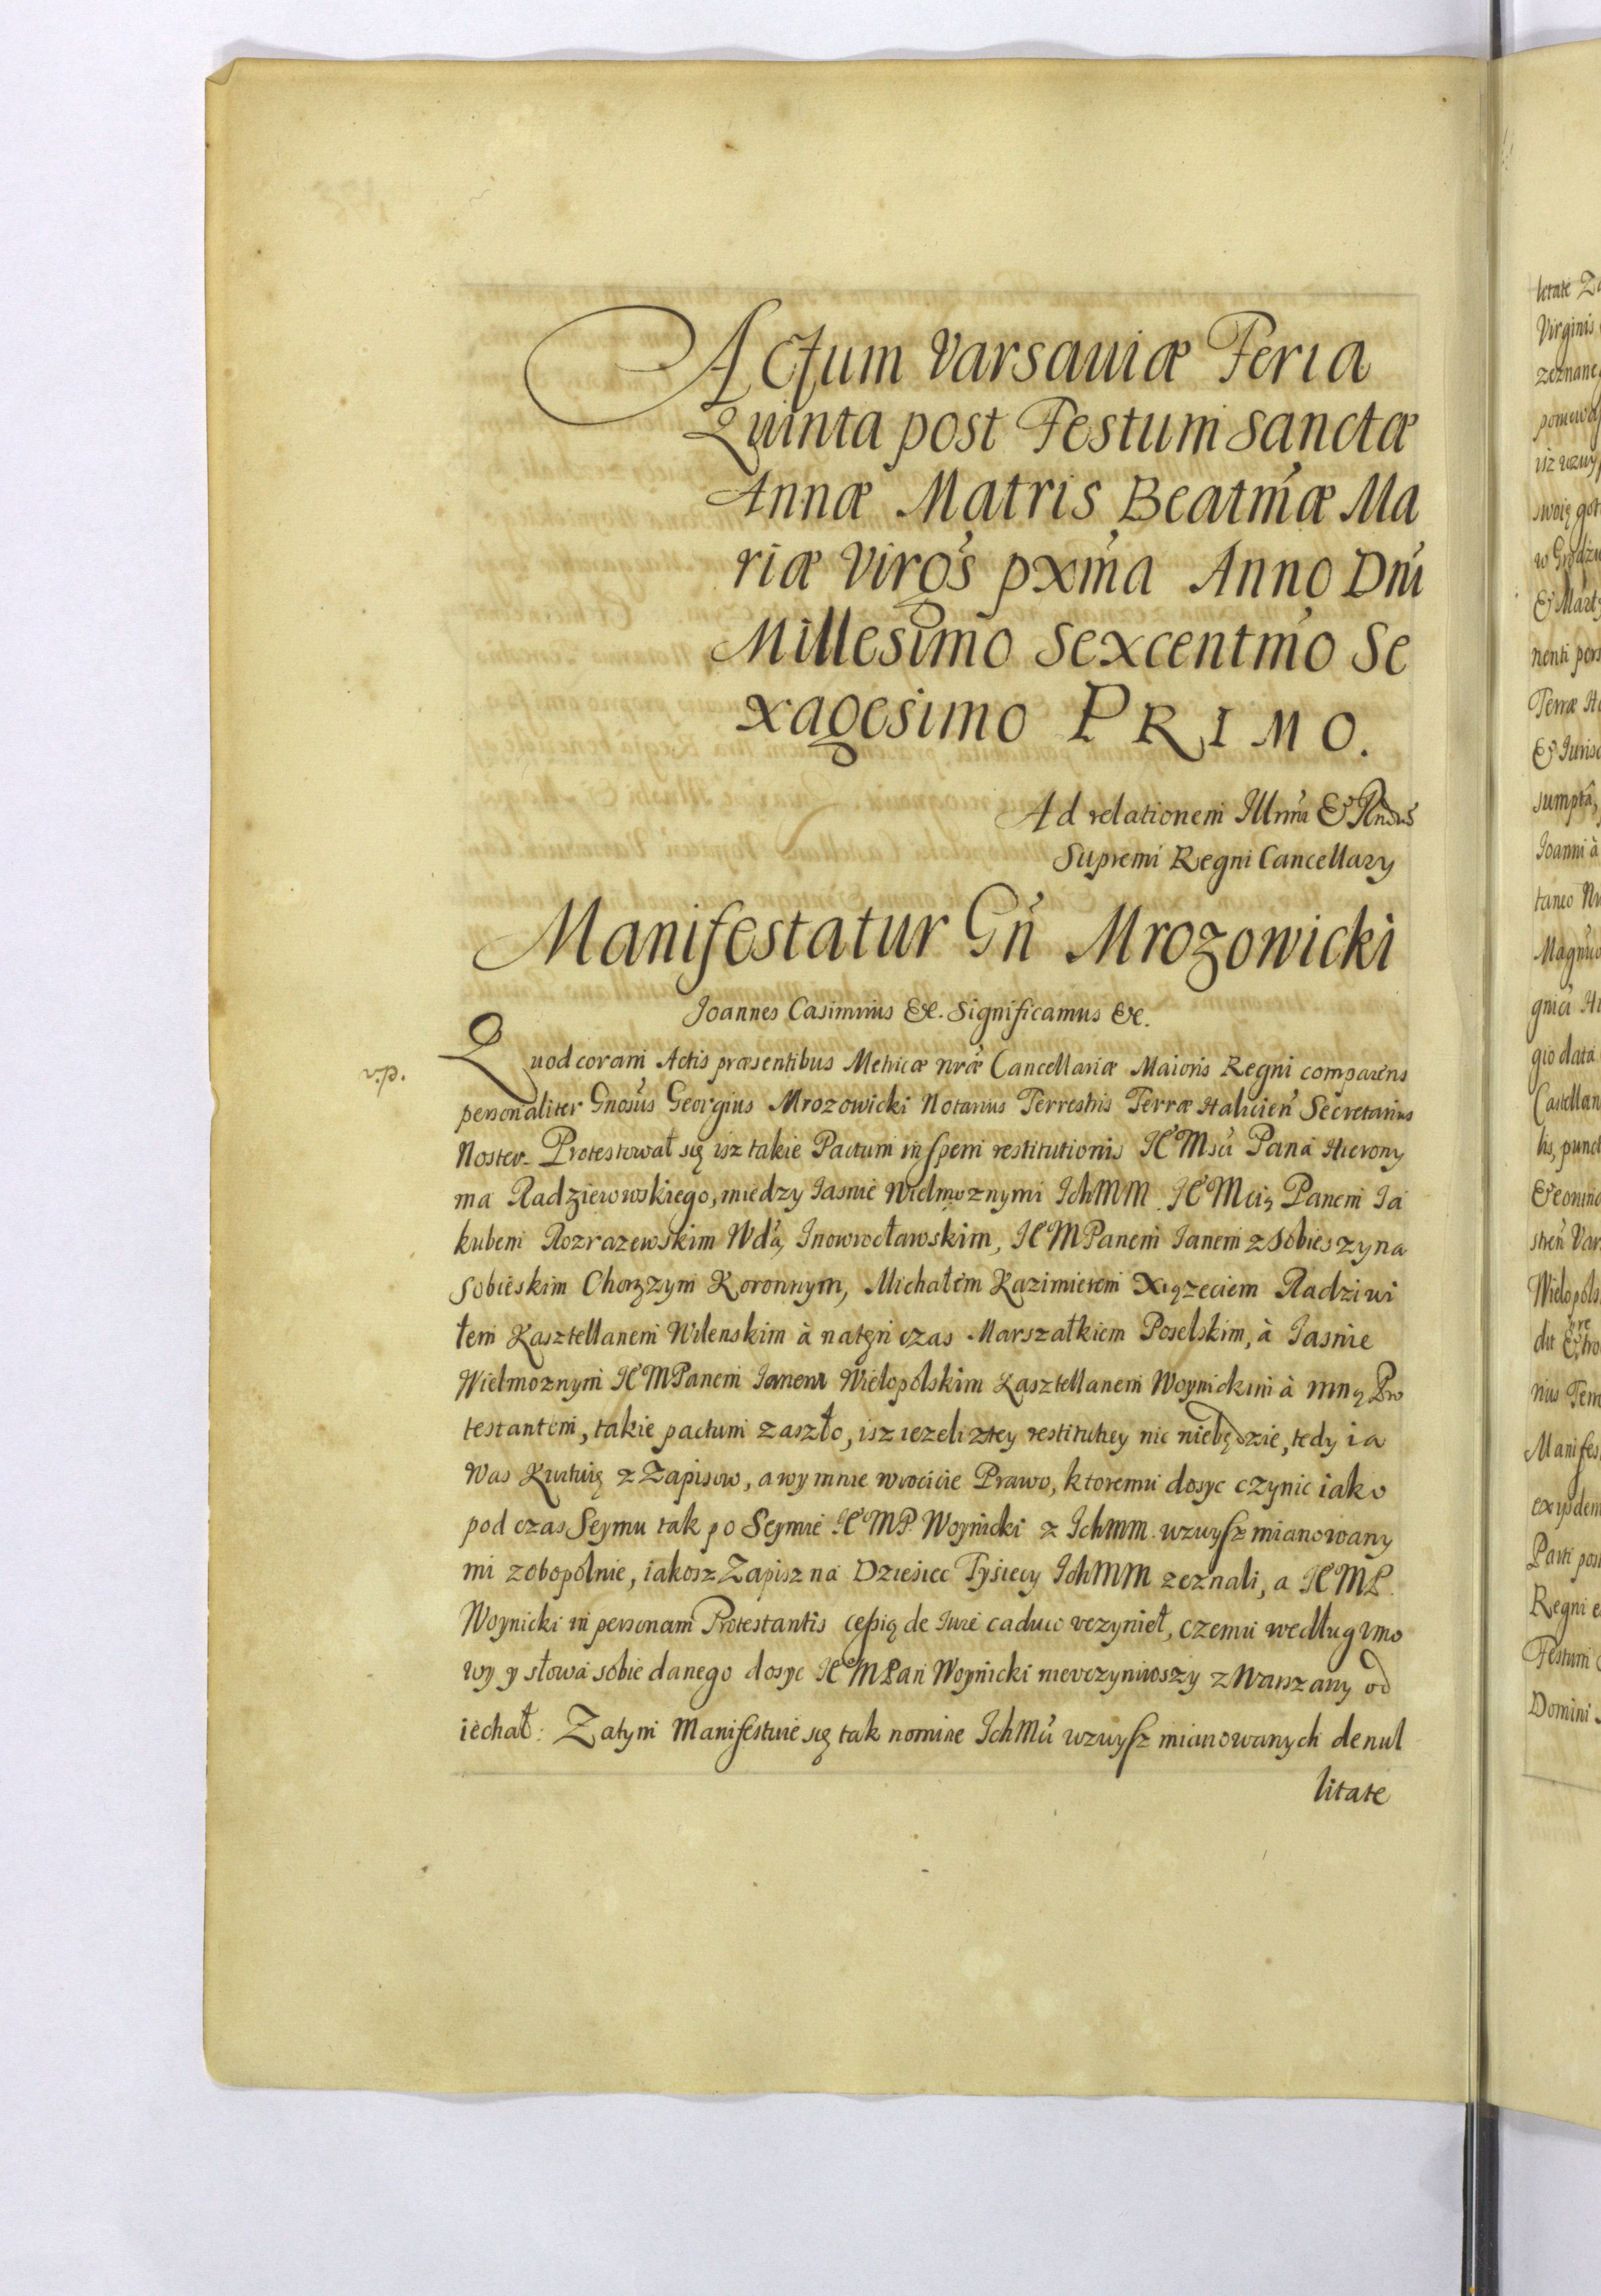 Actum Varsauiæ Feria
Quinta post Festum Sanctæ
Annæ Matris Beatmæ Ma
riæ Virgs pxma Anno Dni
Millesimo Sexcentmo Se
xagesimo PRIMO.
Ad relationem Illmi & Rndmi
Supremi Regni Cancellary
Manifestatur Gn Mrozowicki
Joannes Casimirus &c. Significamus &c.
Quod coram Actis præsentibus Metricæ nræ Cancellariæ Maioris Regni comparens
personaliter Gnosus Georgius Mrozowicki Notarius Terrestris Terræ Halicien Secretarius
Noster. Protestował się isz takie Pactum in spem restitutionis JeMsci Pana Hierony
ma Radzieiowskiego, miedzy Iasnie Wielmoznymi IchMM. JeMcią Panem Ia
kubem Rozrazewskim Wdą Inowrocławskim, JeMPanem Ianem z Sobieszyna
Sobieskim Chorązym Koronnym, Michałem Kazimierem Xiązeciem Radziwi
łem Kasztellanem Wilenskim à natęn czas Marszałkiem Poselskim, à Iasnie
Wielmoznym JeMPanem Ianem Wielopolskim Kasztellanem Woynickim à mną Pro
testantem, takie pactum zaszło, isz iezeli ztey restitutiey nic niebędzie, tedy ia
Was kwituię z Zapisow, a wy mnie wrocicie Prawo, ktoremu dosyc czynic iako
pod czas Seymu tak po Seymie JeMP. Woynicki z IchMM. wzwysz mianowany
mi zobopolnie, iakosz Zapisz na Dziesiec Tysiecy IchMM zeznali, a JeMP.
Woynicki in personam Protestantis cessią de Iure caduco vczynieł, czemu według vmo
wy y słowa sobie danego dosyc JeMPan Woynicki nievczyniwszy z Warszawy od
iechał: Zatym Manifestuie się tak nomine IchMci wzwysz mianowanych de nul
litate